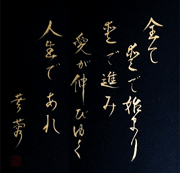 全て
愛で始まり
愛で進み
愛が伸びゆく
人生で あれ